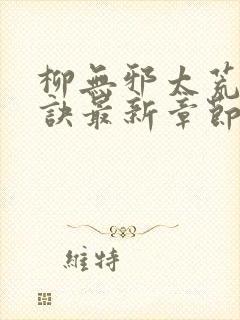 柳無邪太荒
訣最新章節
維特